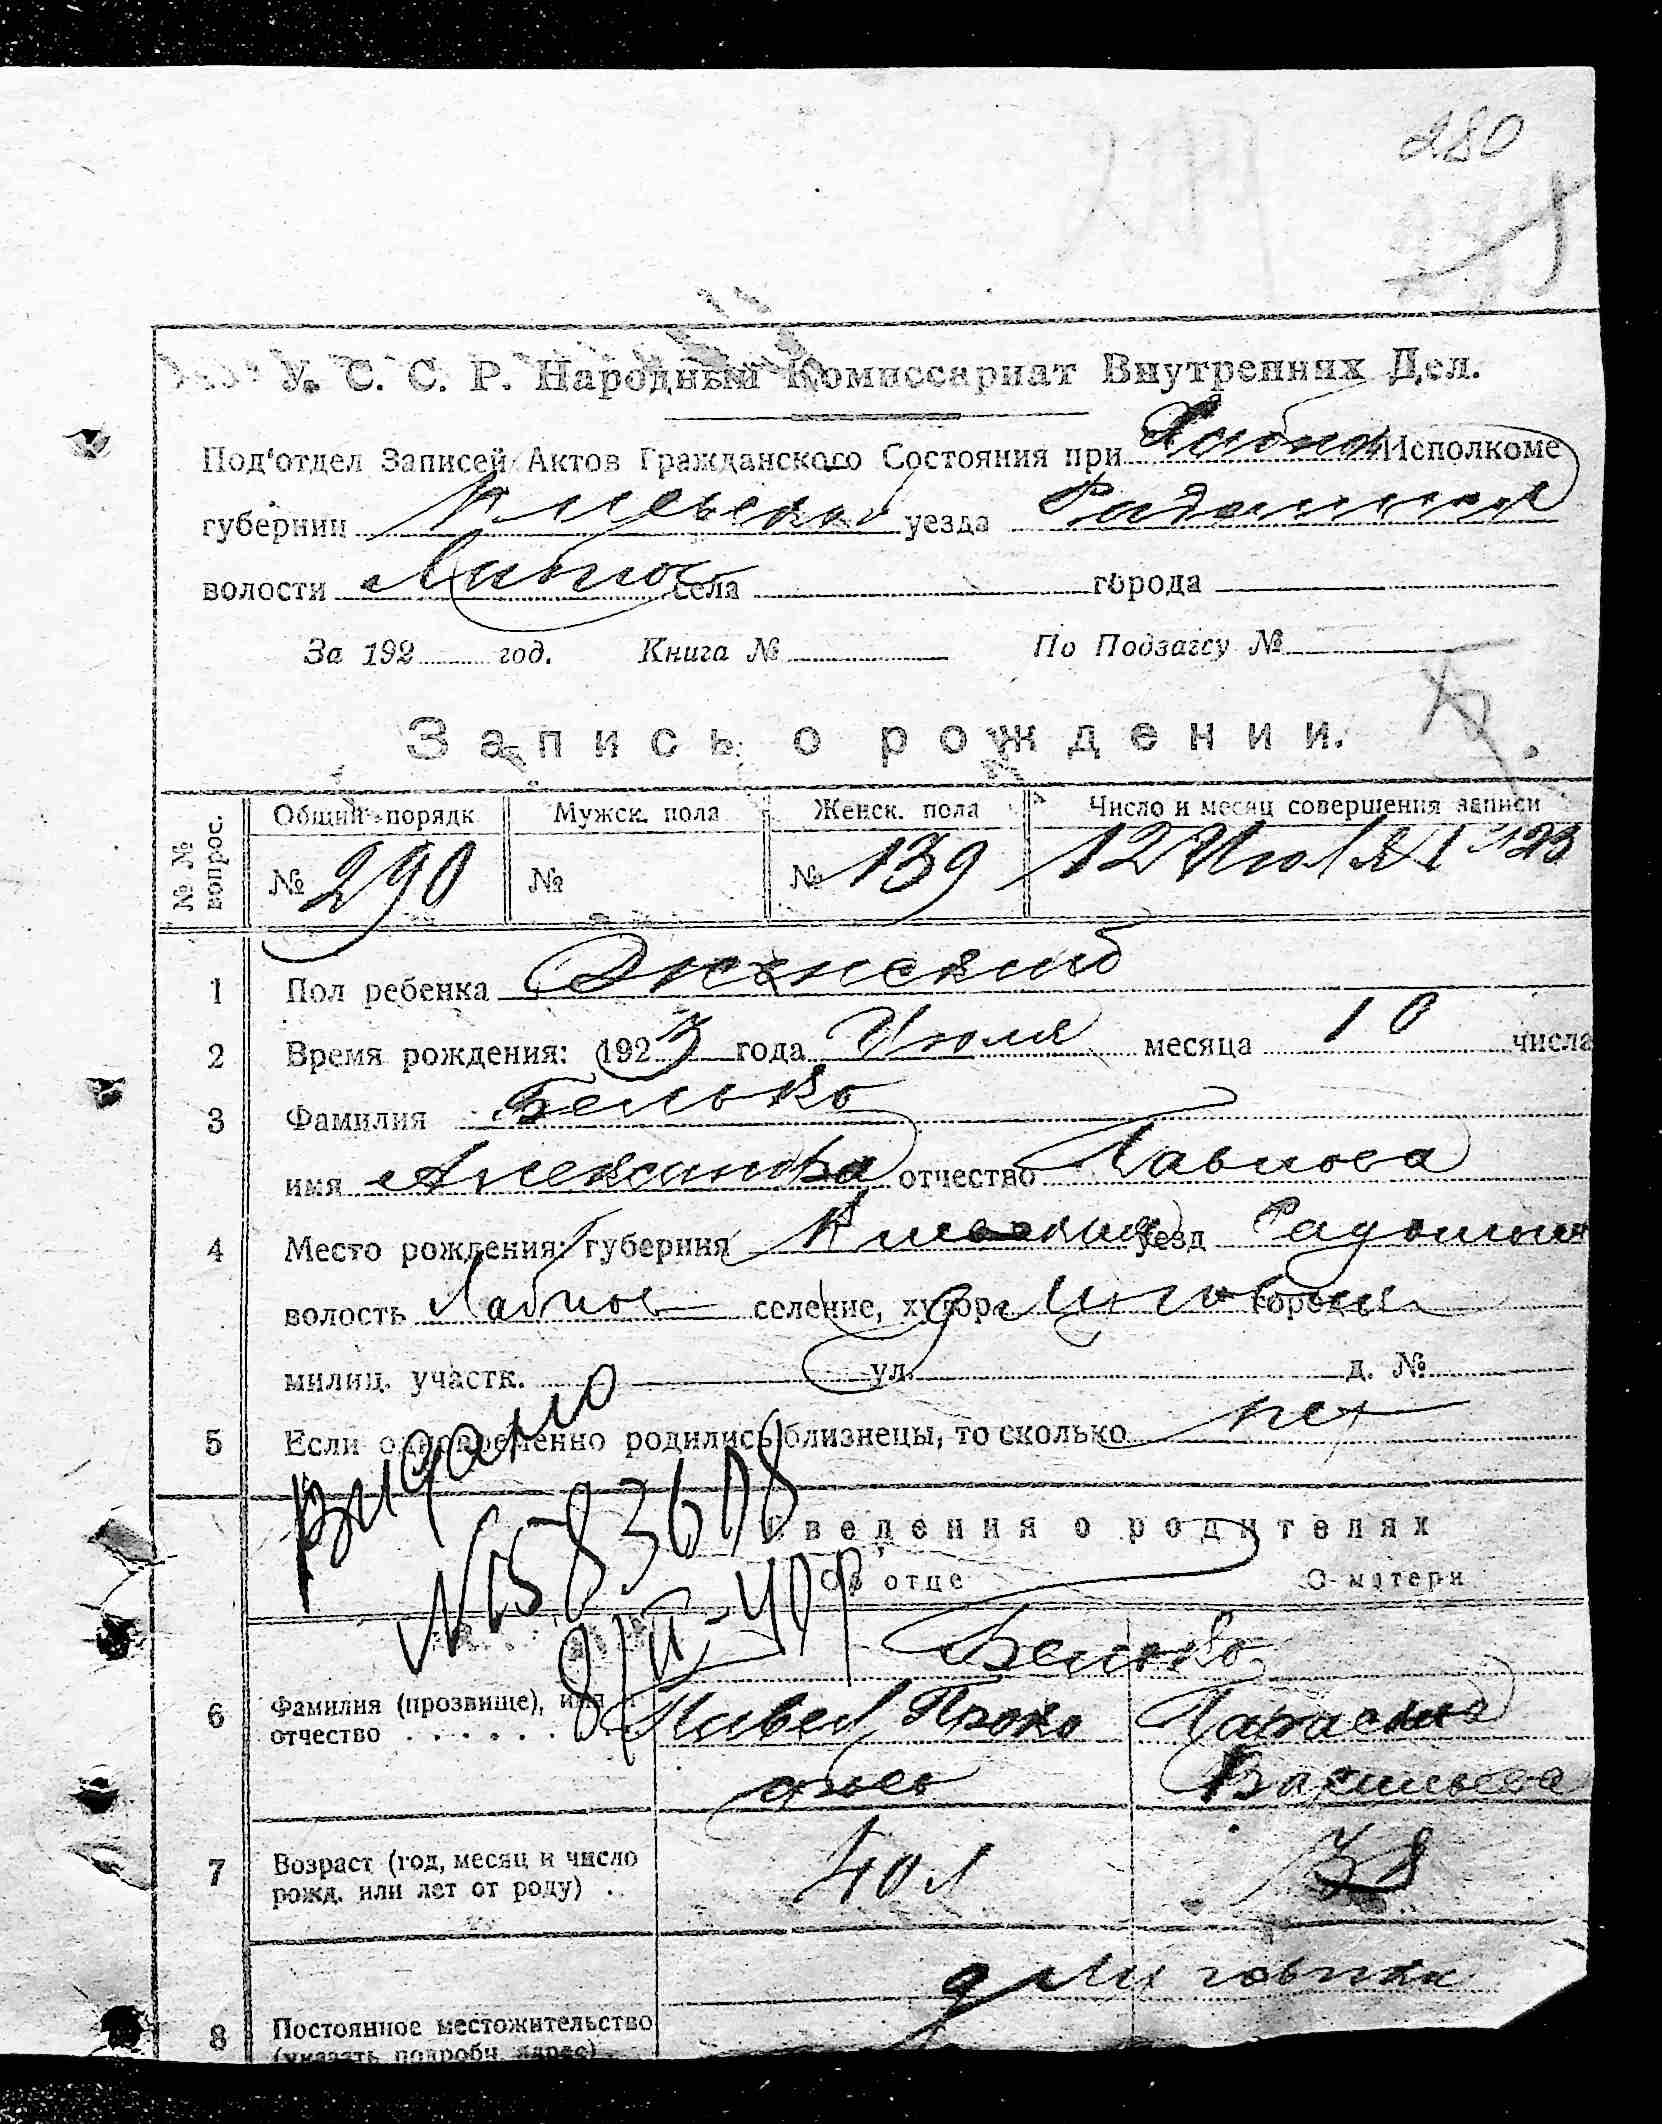 280
У. С. С. Р. Народный Комиссариат Внутренних Дел.
Под'отдел Записей Актов Гражданского Состояния при Исполкоме
губернии Киевской уезда
волости села города
За 192 год. Книга № По Подзагсу №
Запись о рождении.
№ № вопрос. Общий порядк Мужск. пола Женск. пола Число и месяц совершения записи
№ 290 № № 139 12 Июля 1923
1 Пол ребенка Женский
2 Время рождения: 1923 года Июля месяца 10 числа
3 Фамилия Белько
имя Александра отчество Павлова
4 Место рождения: губерния Киевская уезд
волость селение, хутор город
милиц. участк. ул. д. №
5 Если одновременно родились близнецы, то сколько нет
Видано
№ 583608
Сведения о родителях
Об отце О матери
Белько
6 Фамилия (прозвище), имя и Павел Проко Параскева
отчество
фьев Васильева
7 Возраст (год, месяц и число 40 л 38
рожд. или лет от роду)
8 Постоянное местожительство
(указать подробн. адрес)